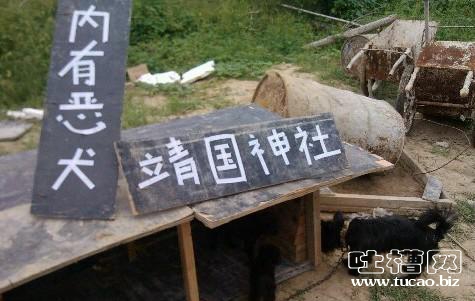 内有恶犬
靖国神社
吐槽网
www.tucao.biz